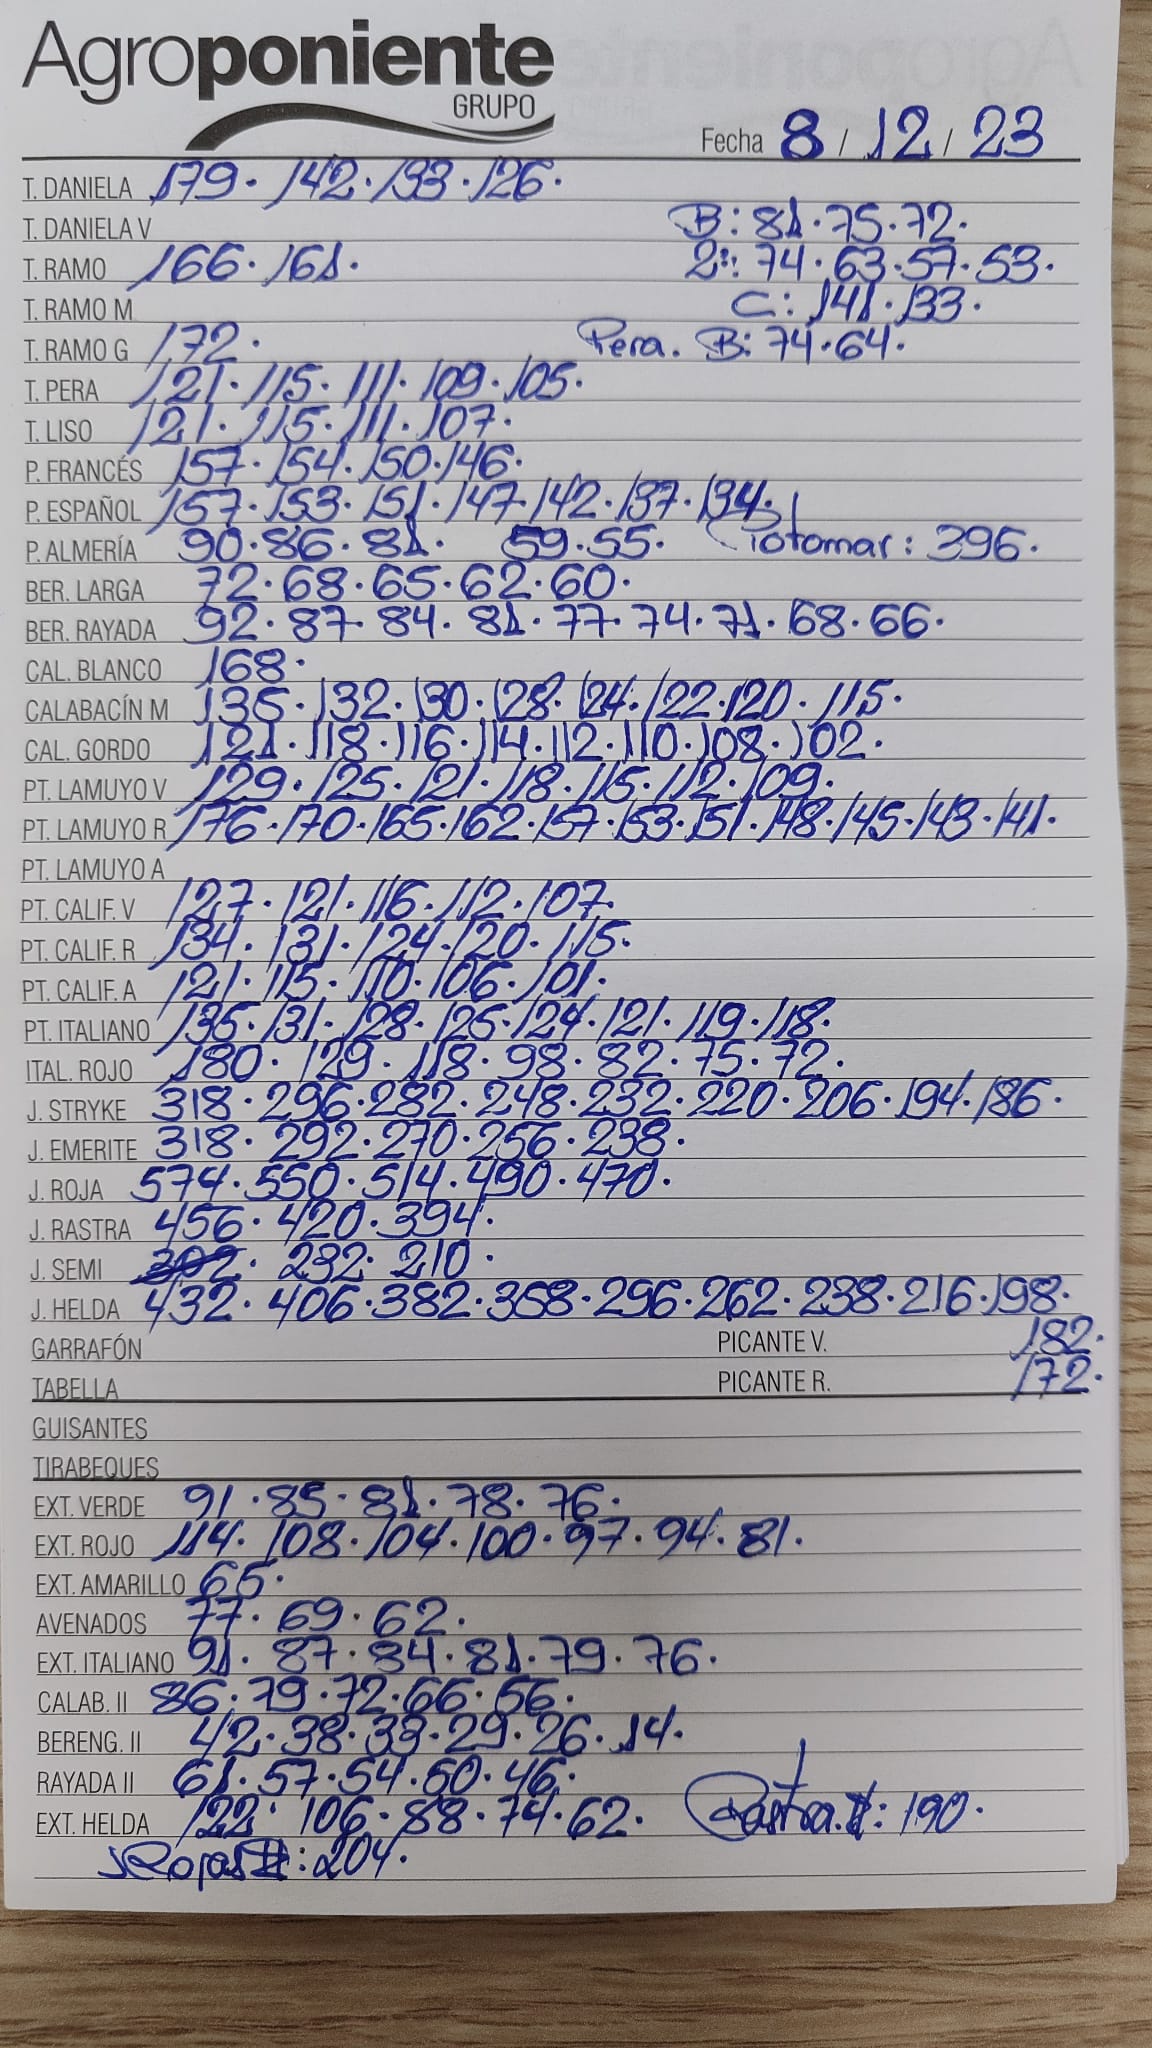 Agroponiente
GRUPO
Fecha 8 / 12 / 23
T. DANIELA 179. 142. 133. 126.
T. DANIELA V B: 81. 75. 72.
T. RAMO 166. 161. 2ª: 74. 63. 57. 53.
T. RAMO M C: 141. 133.
T. RAMO G 172. Pera. B: 74. 64.
T. PERA 121. 115. 111. 109. 105.
T. LISO 121. 115. 111. 107.
P. FRANCÉS 157. 154. 150. 146.
P. ESPAÑOL 157. 153. 151. 147. 142. 137. 134.
P. ALMERÍA 90. 86. 81. 59. 55. Totomar: 396.
BER. LARGA 72. 68. 65. 62. 60.
BER. RAYADA 92. 87. 84. 81. 77. 74. 71. 68. 66.
CAL. BLANCO 168.
CALABACÍN M 135. 132. 130. 128. 124. 122. 120. 115.
CAL. GORDO 121. 118. 116. 114. 112. 110. 108. 102.
PT. LAMUYO V 129. 125. 121. 118. 115. 112. 109.
PT. LAMUYO R 176. 170. 165. 162. 157. 153. 151. 148. 145. 143. 141.
PT. LAMUYO A
PT. CALIF. V 127. 121. 116. 112. 107.
PT. CALIF. R 134. 131. 124. 120. 115.
PT. CALIF. A 121. 115. 110. 106. 101.
PT. ITALIANO 135. 131. 128. 125. 124. 121. 119. 118.
ITAL. ROJO 180. 129. 118. 98. 82. 75. 72.
J. STRYKE 318. 296. 282. 248. 232. 220. 206. 194. 186.
J. EMERITE 318. 292. 270. 256. 238.
J. ROJA 574. 550. 514. 490. 470.
J. RASTRA 456. 420. 394.
J. SEMI 302. 232. 210.
J. HELDA 432. 406. 382. 358. 296. 262. 238. 216. 198.
GARRAFÓN PICANTE V. 182.
TABELLA PICANTE R. 172.
GUISANTES
TIRABEQUES
EXT. VERDE 91. 85. 81. 78. 76.
EXT. ROJO 114. 108. 104. 100. 97. 94. 81.
EXT. AMARILLO 65.
AVENADOS 77. 69. 62.
EXT. ITALIANO 91. 87. 84. 81. 79. 76.
CALAB. II 86. 79. 72. 66. 56.
BERENG. II 42. 38. 33. 29. 26. 14.
RAYADA II 61. 57. 54. 50. 46.
EXT. HELDA 122. 106. 88. 74. 62. Rastra. II: 190.
Rojas II: 204.